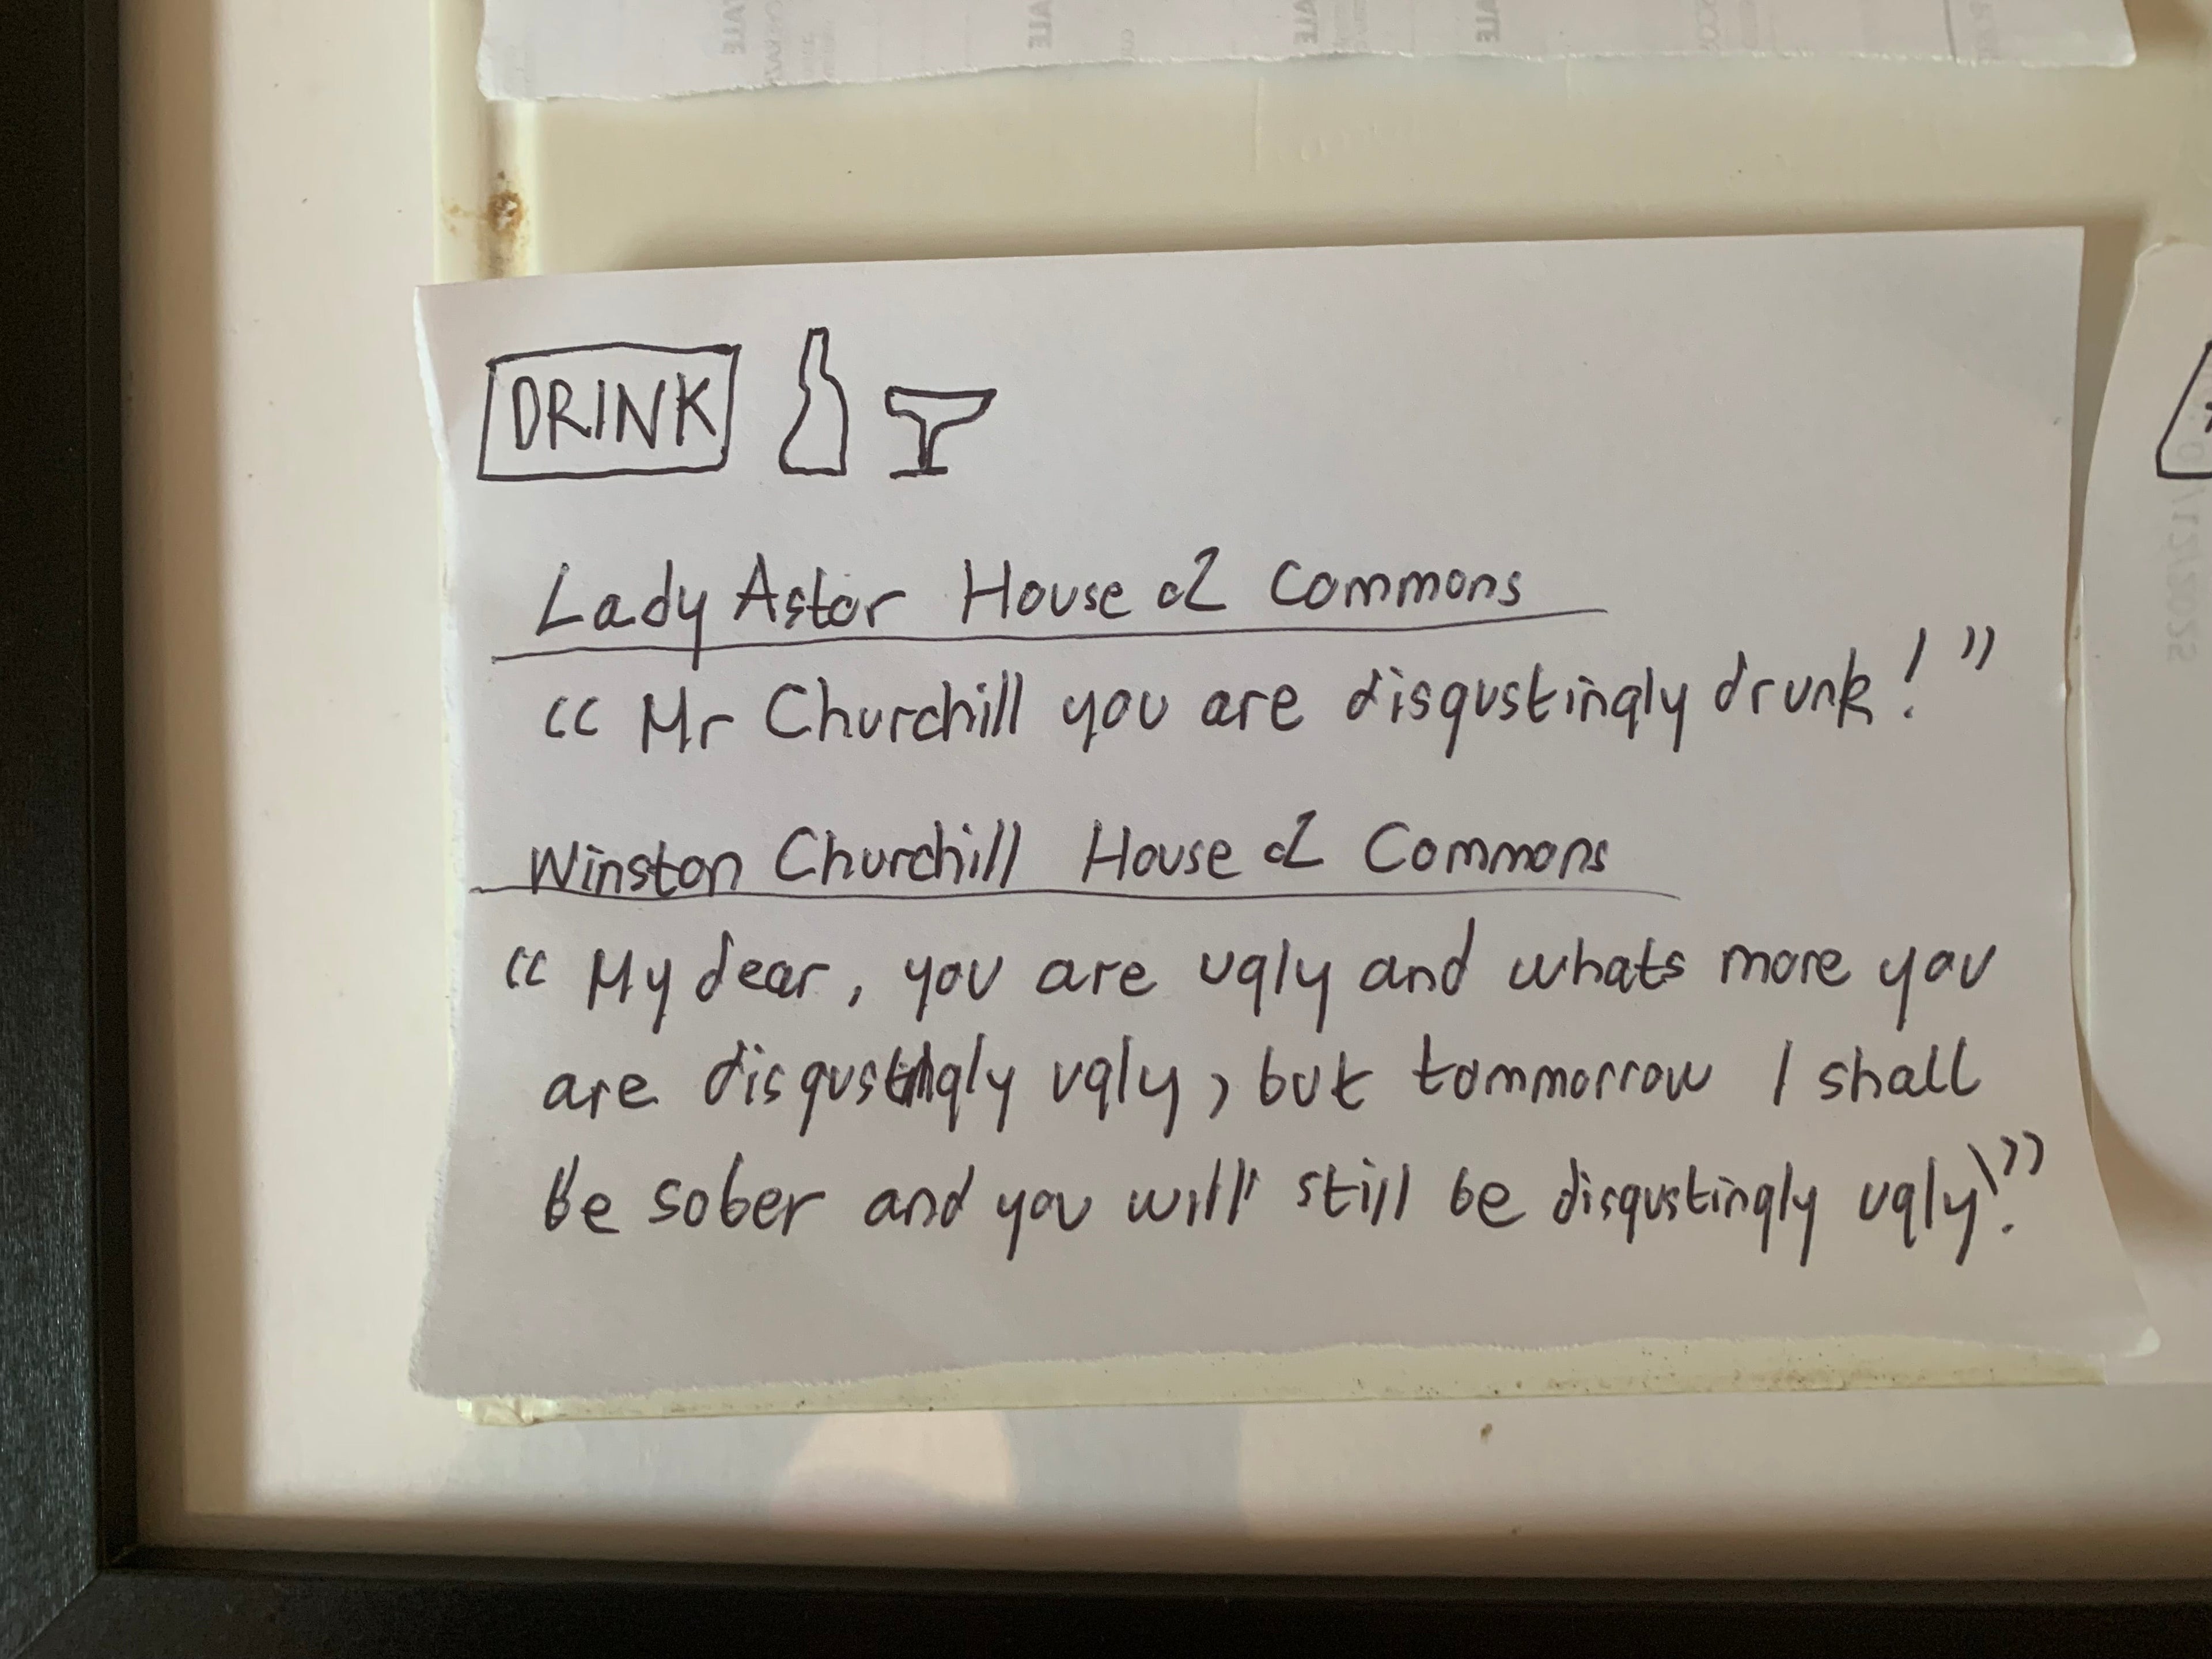 DRINK
Lady Astor House of Commons
“Mr Churchill you are disgustingly drunk!”
Winston Churchill House of Commons
“My dear, you are ugly and whats more you
are disgustingly ugly, but tommorrow I shall
be sober and you will still be disgustingly ugly!”
12/2025